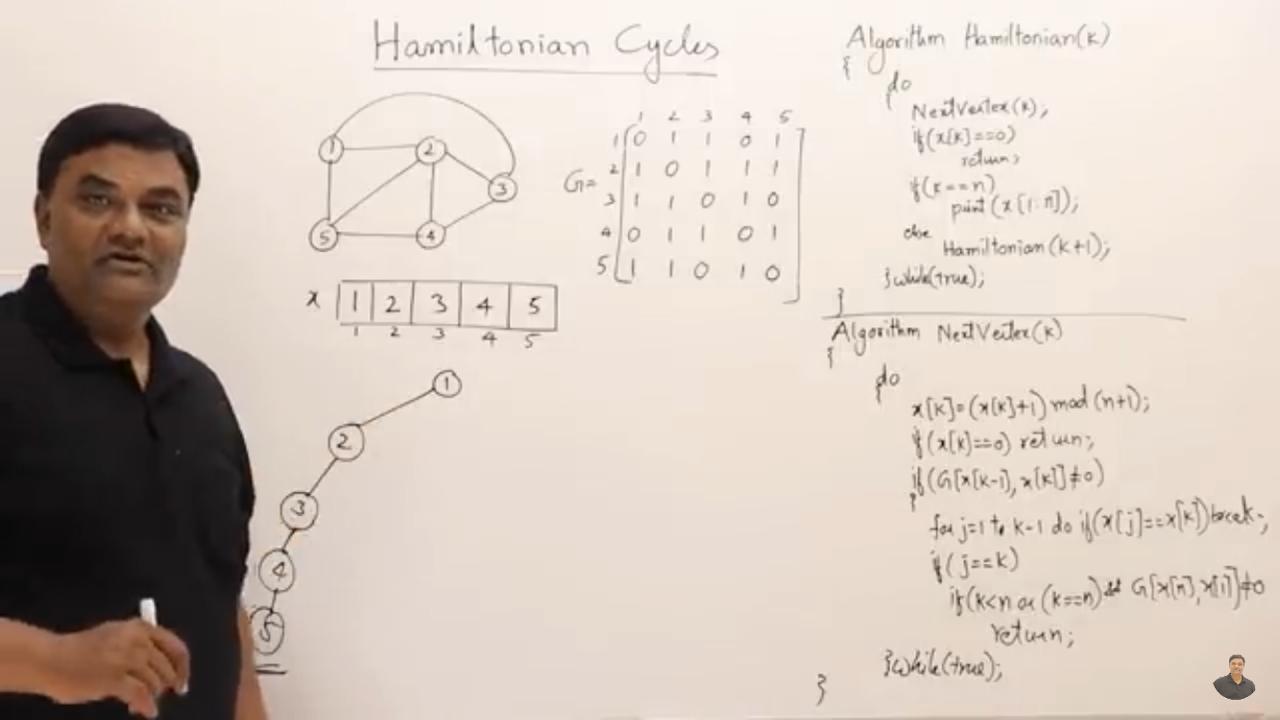 Hamiltonian Cycles
1
2
3
5
4
1 2 3 4 5
G=
1 0 1 1 0 1
2 1 0 1 1 1
3 1 1 0 1 0
4 0 1 1 0 1
5 1 1 0 1 0
x 1 2 3 4 5
1 2 3 4 5
1
2
3
4
5
Algorithm Hamiltonian(k)
{
do
{
NextVertex(k);
if(x[k]==0)
return;
if(k==n)
print(x[1:n]);
else
Hamiltonian(k+1);
}while(true);
}
Algorithm NextVertex(k)
{
do
{
x[k]=(x[k]+1) mod (n+1);
if(x[k]==0) return;
if(G[x[k-1],x[k]]≠0)
{
for j=1 to k-1 do if(x[j]==x[k]) break;
if(j==k)
if(k<n or (k==n) && G[x[n],x[1]]≠0
return;
}while(true);
}